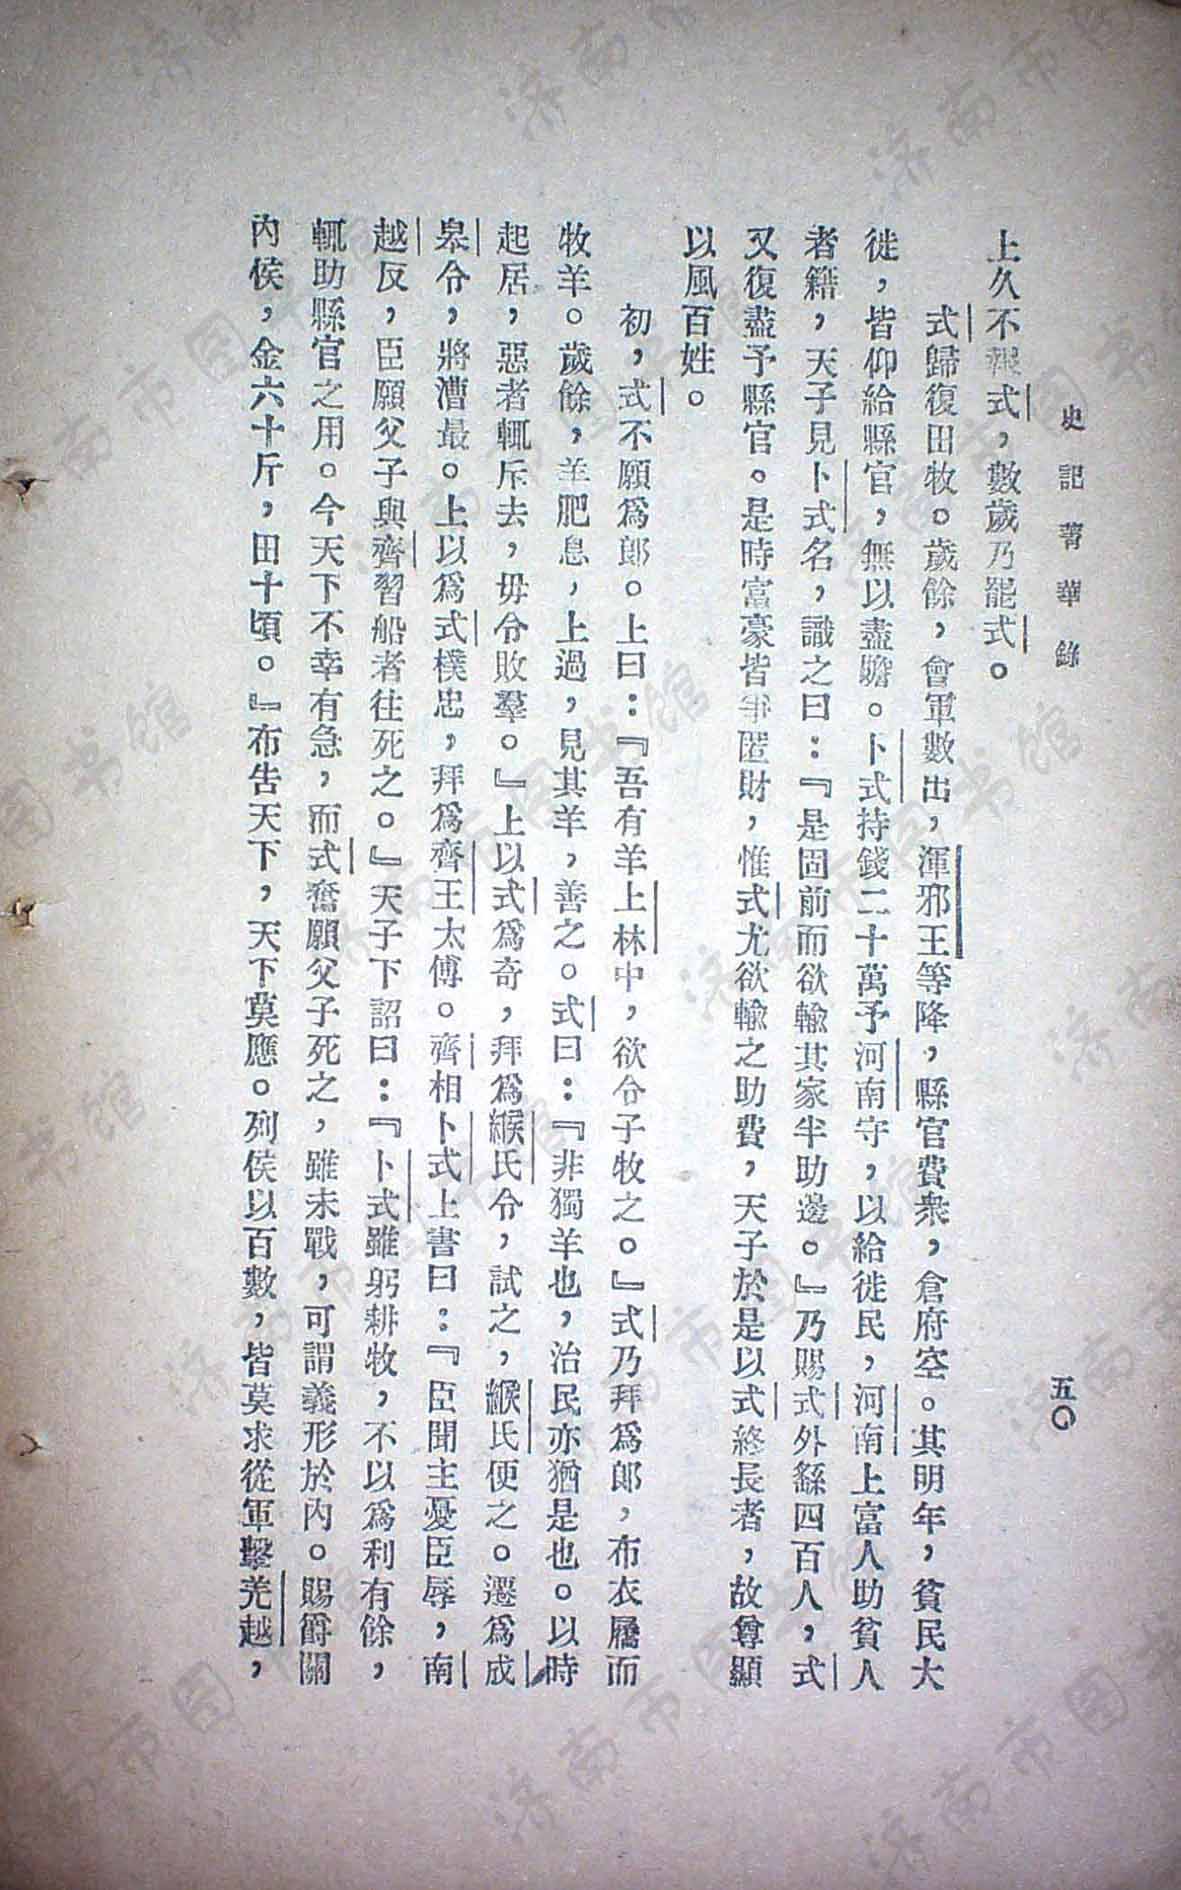 史記菁華錄
五〇
上久不報式，數歲乃罷式。
式歸復田牧。歲餘，會軍數出，渾邪王等降，縣官費衆，倉府空。其明年，貧民大
徙，皆仰給縣官，無以盡贍。卜式持錢二十萬予河南守，以給徙民，河南上富人助貧人
者籍，天子見卜式名，識之曰：『是固前而欲輸其家半助邊。』乃賜式外繇四百人，式
又復盡予縣官。是時富豪皆爭匿財，惟式尤欲輸之助費，天子於是以式終長者，故尊顯
以風百姓。
初，式不願爲郎。上曰：『吾有羊上林中，欲令子牧之。』式乃拜爲郎，布衣屩而
牧羊。歲餘，羊肥息，上過，見其羊，善之。式曰：『非獨羊也，治民亦猶是也。以時
起居，惡者輒斥去，毋令敗羣。』上以式爲奇，拜爲緱氏令，試之，緱氏便之。遷爲成
皋令，將漕最。上以爲式樸忠，拜爲齊王太傅。齊相卜式上書曰：『臣聞主憂臣辱，南
越反，臣願父子與齊習船者往死之。』天子下詔曰：『卜式雖躬耕牧，不以爲利有餘，
輒助縣官之用。今天下不幸有急，而式奮願父子死之，雖未戰，可謂義形於內。賜爵關
內侯，金六十斤，田十頃。』布告天下，天下莫應。列侯以百數，皆莫求從軍擊羌越，
济南市图书馆